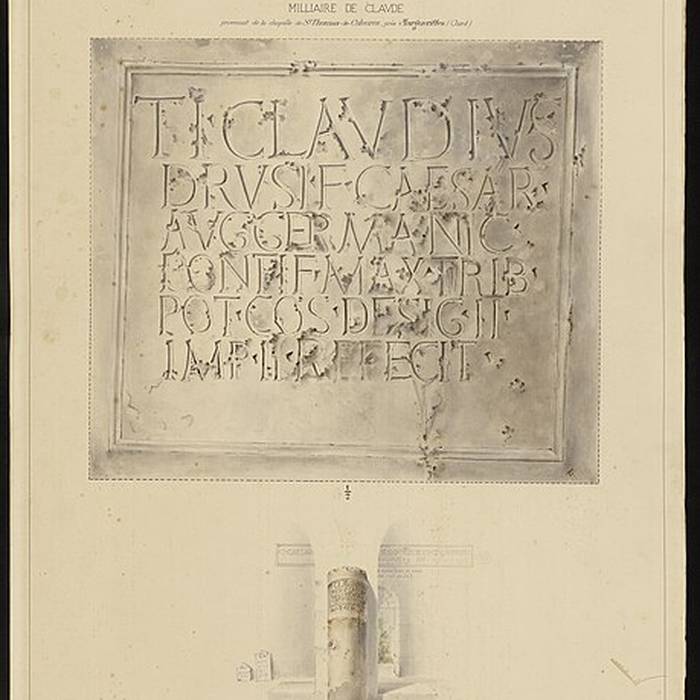 MILLIAIRE DE CLAVDE
provenant de la chapelle de St Thomas de Colomne, près Marguerittes (Gard)
TI·CLAVDIVS
DRVSI·F·CAESAR
AVG·GERMANIC
PONTIF·MAX·TRIB
POT·COS·DESIG·II
IMP·II·REFECIT